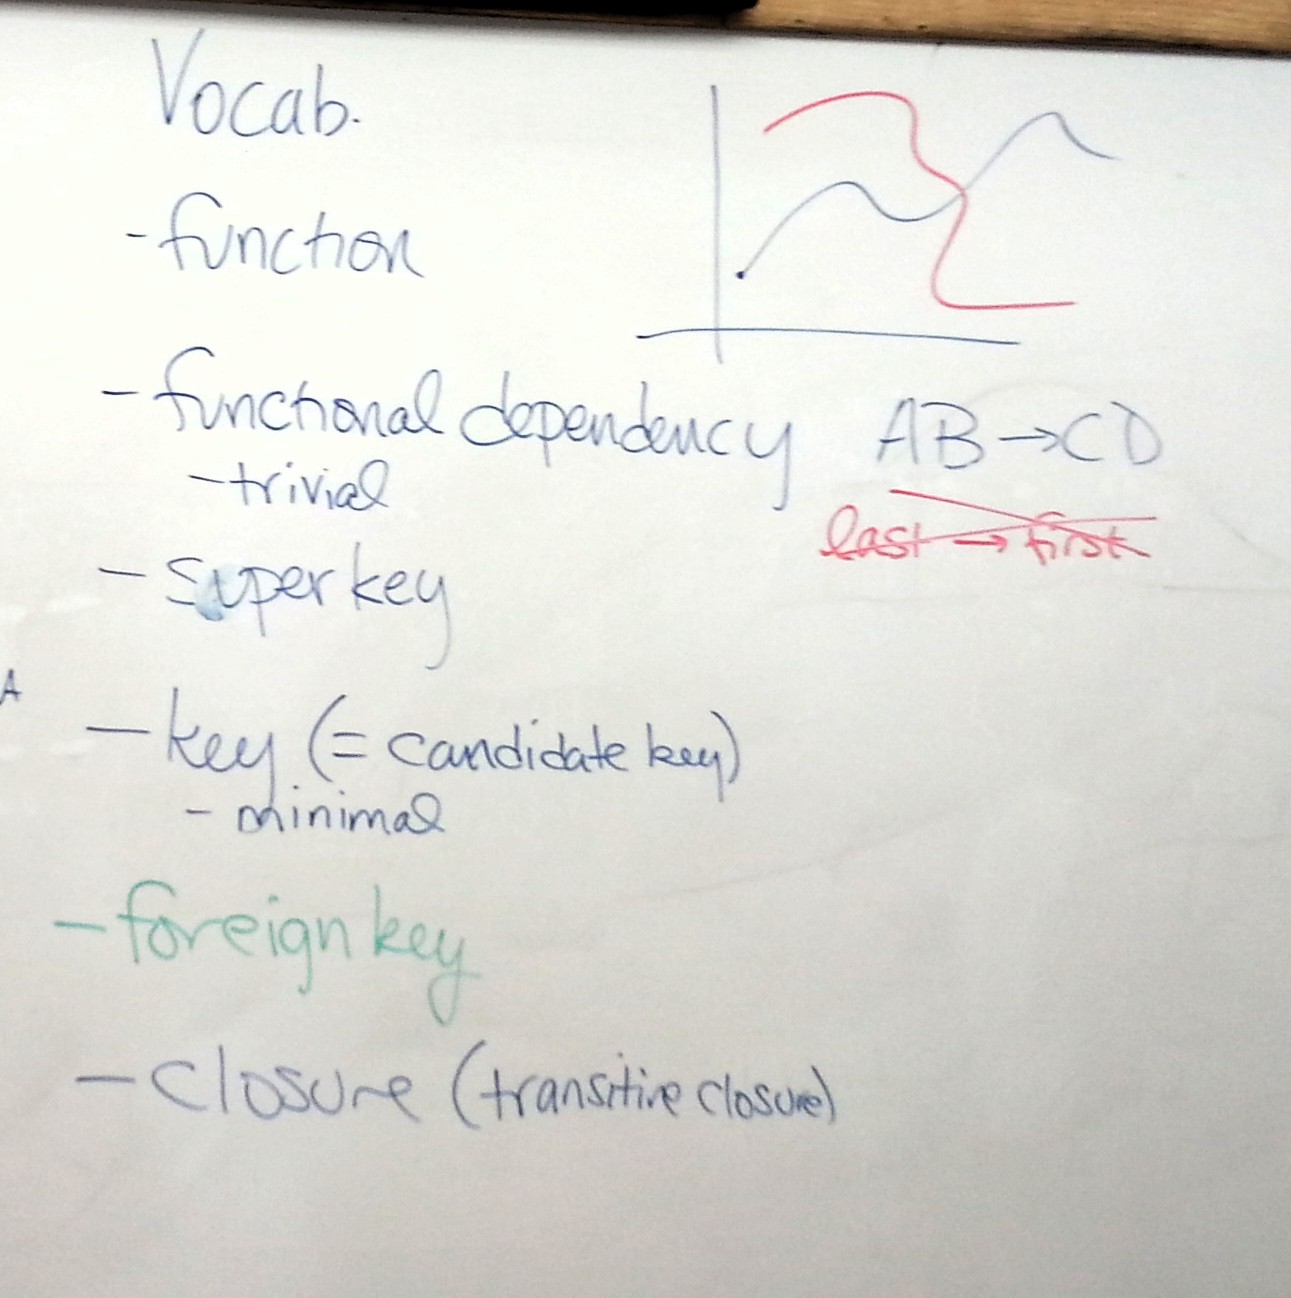 Vocab.
- function
- functional dependency AB→CD
- trivial
last → first
- superkey
A
- key (= candidate key)
- minimal
- foreign key
- closure (transitive closure)